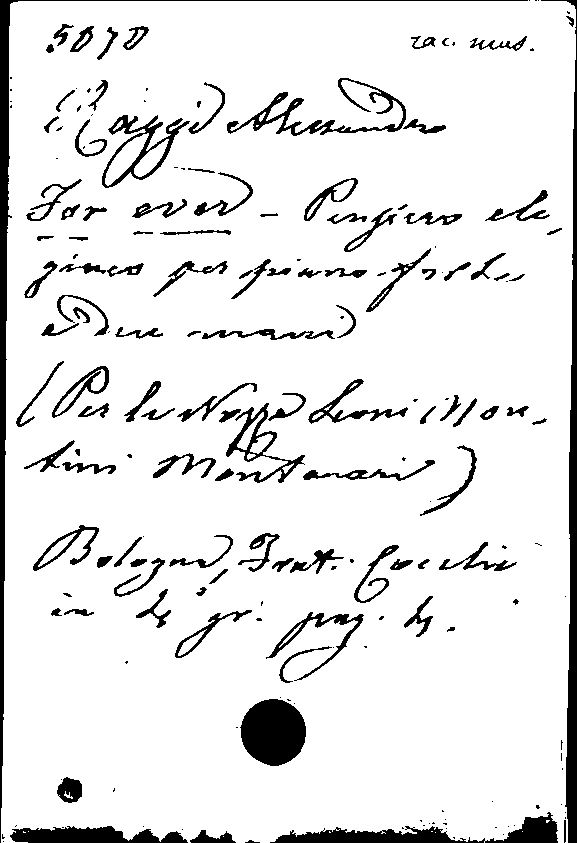 5070 rac. mus.
Raggi Alessandro
For ever - Pensiero ele,
giaco per piano-forte
a due mani
(Per le Nozze Leoni Mon,
tini Montanari)
Bologna, Frat. Cocchi
in 4° gr. pag. 4.